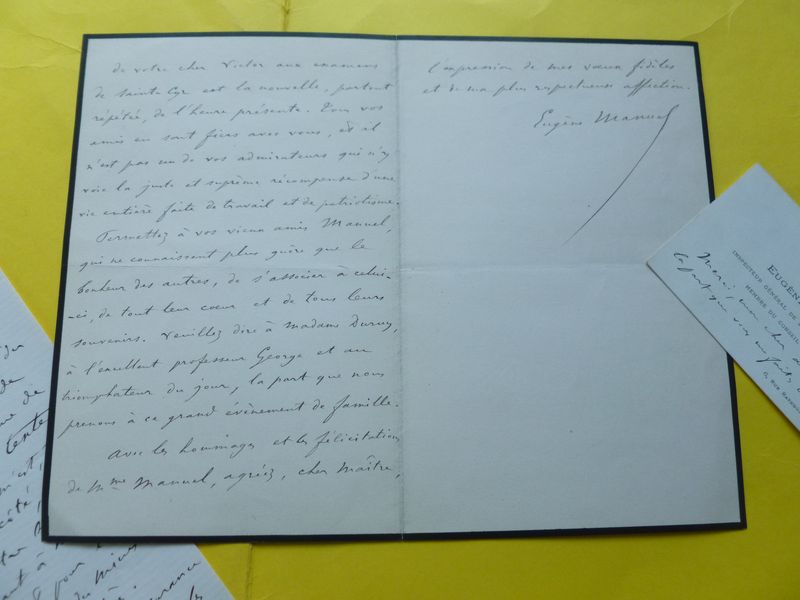 de votre cher Victor aux examens
de Saint Cyr est la nouvelle, partout
répétée, de l'heure présente. Tous vos
amis en sont fiers avec vous, et il
n'est pas un de vos admirateurs qui n'y
voie la juste et suprême récompense d'une
vie entière faite de travail et de patriotisme.
Permettez à vos vieux amis Manuel,
qui ne connaissent plus guère que le
bonheur des autres, de s'associer à celui-
-ci, de tout leur cœur et de tous leurs
souvenirs. Veuillez dire à Madame Duruy,
à l'excellent professeur George et au
triomphateur du jour, la part que nous
prenons à ce grand événement de famille.
Avec les hommages et les félicitations
de Mme Manuel, agréez, cher Maître,
l'expression de mes vœux fidèles
et de ma plus respectueuse affection.
Eugène Manuel
EUGÈN
INSPECTEUR GÉNÉRAL DE
MEMBRE DU CONSEIL
Merci mon cher
la part que
de
tente